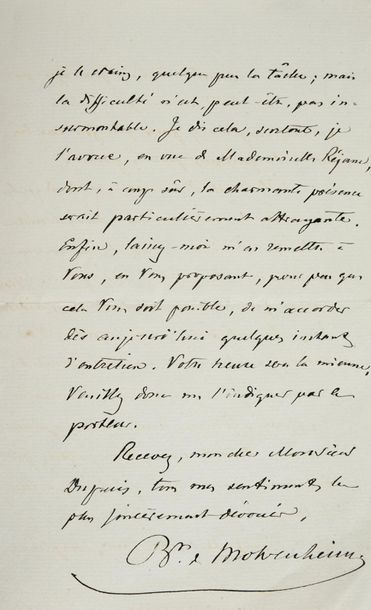 je le crains, quelque peu la tâche ; mais
la difficulté n'est, peut-être, pas in-
surmontable. Je dis cela, surtout, je
l'avoue, en vue de Mademoiselle Réjane,
dont, à coup sûr, la charmante présence
serait particulièrement attrayante.
Enfin, laissez-moi m'en remettre à
Vous, en Vous proposant, pour peu que
cela Vous soit possible, de m'accorder
dès aujourd'hui quelques instants
d'entretien. Votre heure sera la mienne,
Veuillez donc me l'indiquer par le
porteur.
Recevez, mon cher Monsieur
Dupuis, tous mes sentiments les
plus sincèrement dévoués,
Bon de